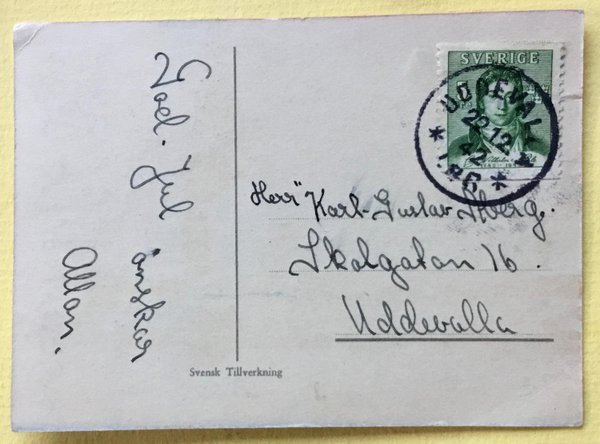 God-Jul
önskar
Allan.
SVERIGE
UDDEVALLA
22.12.
42
Herr Karl-Gustav Åberg.
Skolgatan 16.
Uddevalla
Svensk Tillverkning